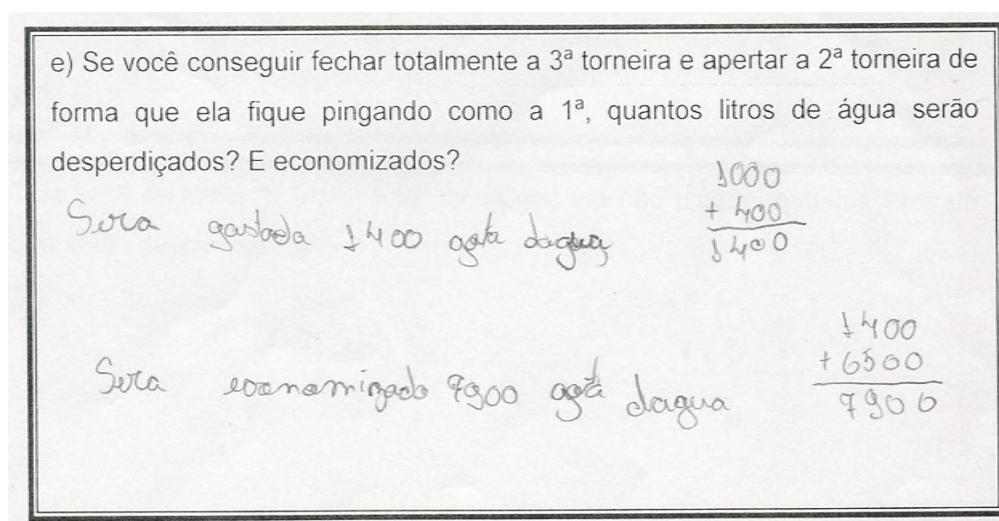 e) Se você conseguir fechar totalmente a 3ª torneira e apertar a 2ª torneira de
forma que ela fique pingando como a 1ª, quantos litros de água serão
desperdiçados? E economizados?
1000
+ 400
1400
Sera gastada 1400 gota dagua
1400
+ 6500
7900
Sera economizado 7900 gota dagua